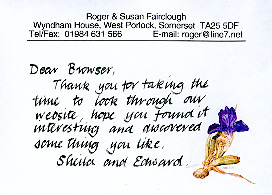 Roger & Susan Fairclough
Wyndham House, West Porlock, Somerset TA25 5DF
Tel/Fax: 01984 631 566 E-mail: roger@line7.net
Dear Browser,
Thank you for taking the
time to look through our
website, hope you found it
interesting and discovered
something you like.
Sheila and Edward.